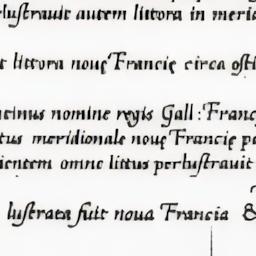 lustrauit autem littora in meri
littora nouę Francię circa osti
tinus nomine regis Gall: Franc
tus meridionale nouę Francię p
ientem omne littus perlustrauit
lustrata fuit noua Francia &